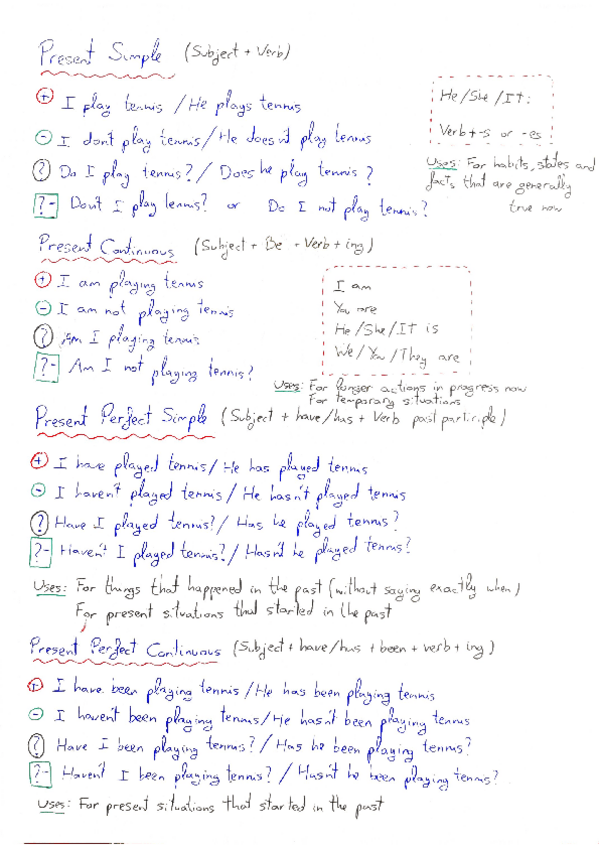 Present Simple (Subject + Verb)
+ I play tennis / He plays tennis
- I don't play tennis / He doesn't play tennis
? Do I play tennis? / Does he play tennis?
?- Don't I play tennis? or Do I not play tennis?
He/She/It:
Verb+-s or -es
Uses: For habits, states and
facts that are generally
true now
Present Continuous (Subject + Be + Verb + ing)
+ I am playing tennis
- I am not playing tennis
? Am I playing tennis
?- Am I not playing tennis?
I am
You are
He/She/It is
We/You/They are
Uses: For longer actions in progress now
For temporary situations
Present Perfect Simple (Subject + have/has + Verb past participle)
+ I have played tennis / He has played tennis
- I haven't played tennis / He hasn't played tennis
? Have I played tennis? / Has he played tennis?
?- Haven't I played tennis? / Hasn't he played tennis?
Uses: For things that happened in the past (without saying exactly when)
For present situations that started in the past
Present Perfect Continuous (Subject + have/has + been + verb + ing)
+ I have been playing tennis / He has been playing tennis
- I haven't been playing tennis / He hasn't been playing tennis
? Have I been playing tennis? / Has he been playing tennis?
?- Haven't I been playing tennis? / Hasn't he been playing tennis?
Uses: For present situations that started in the past